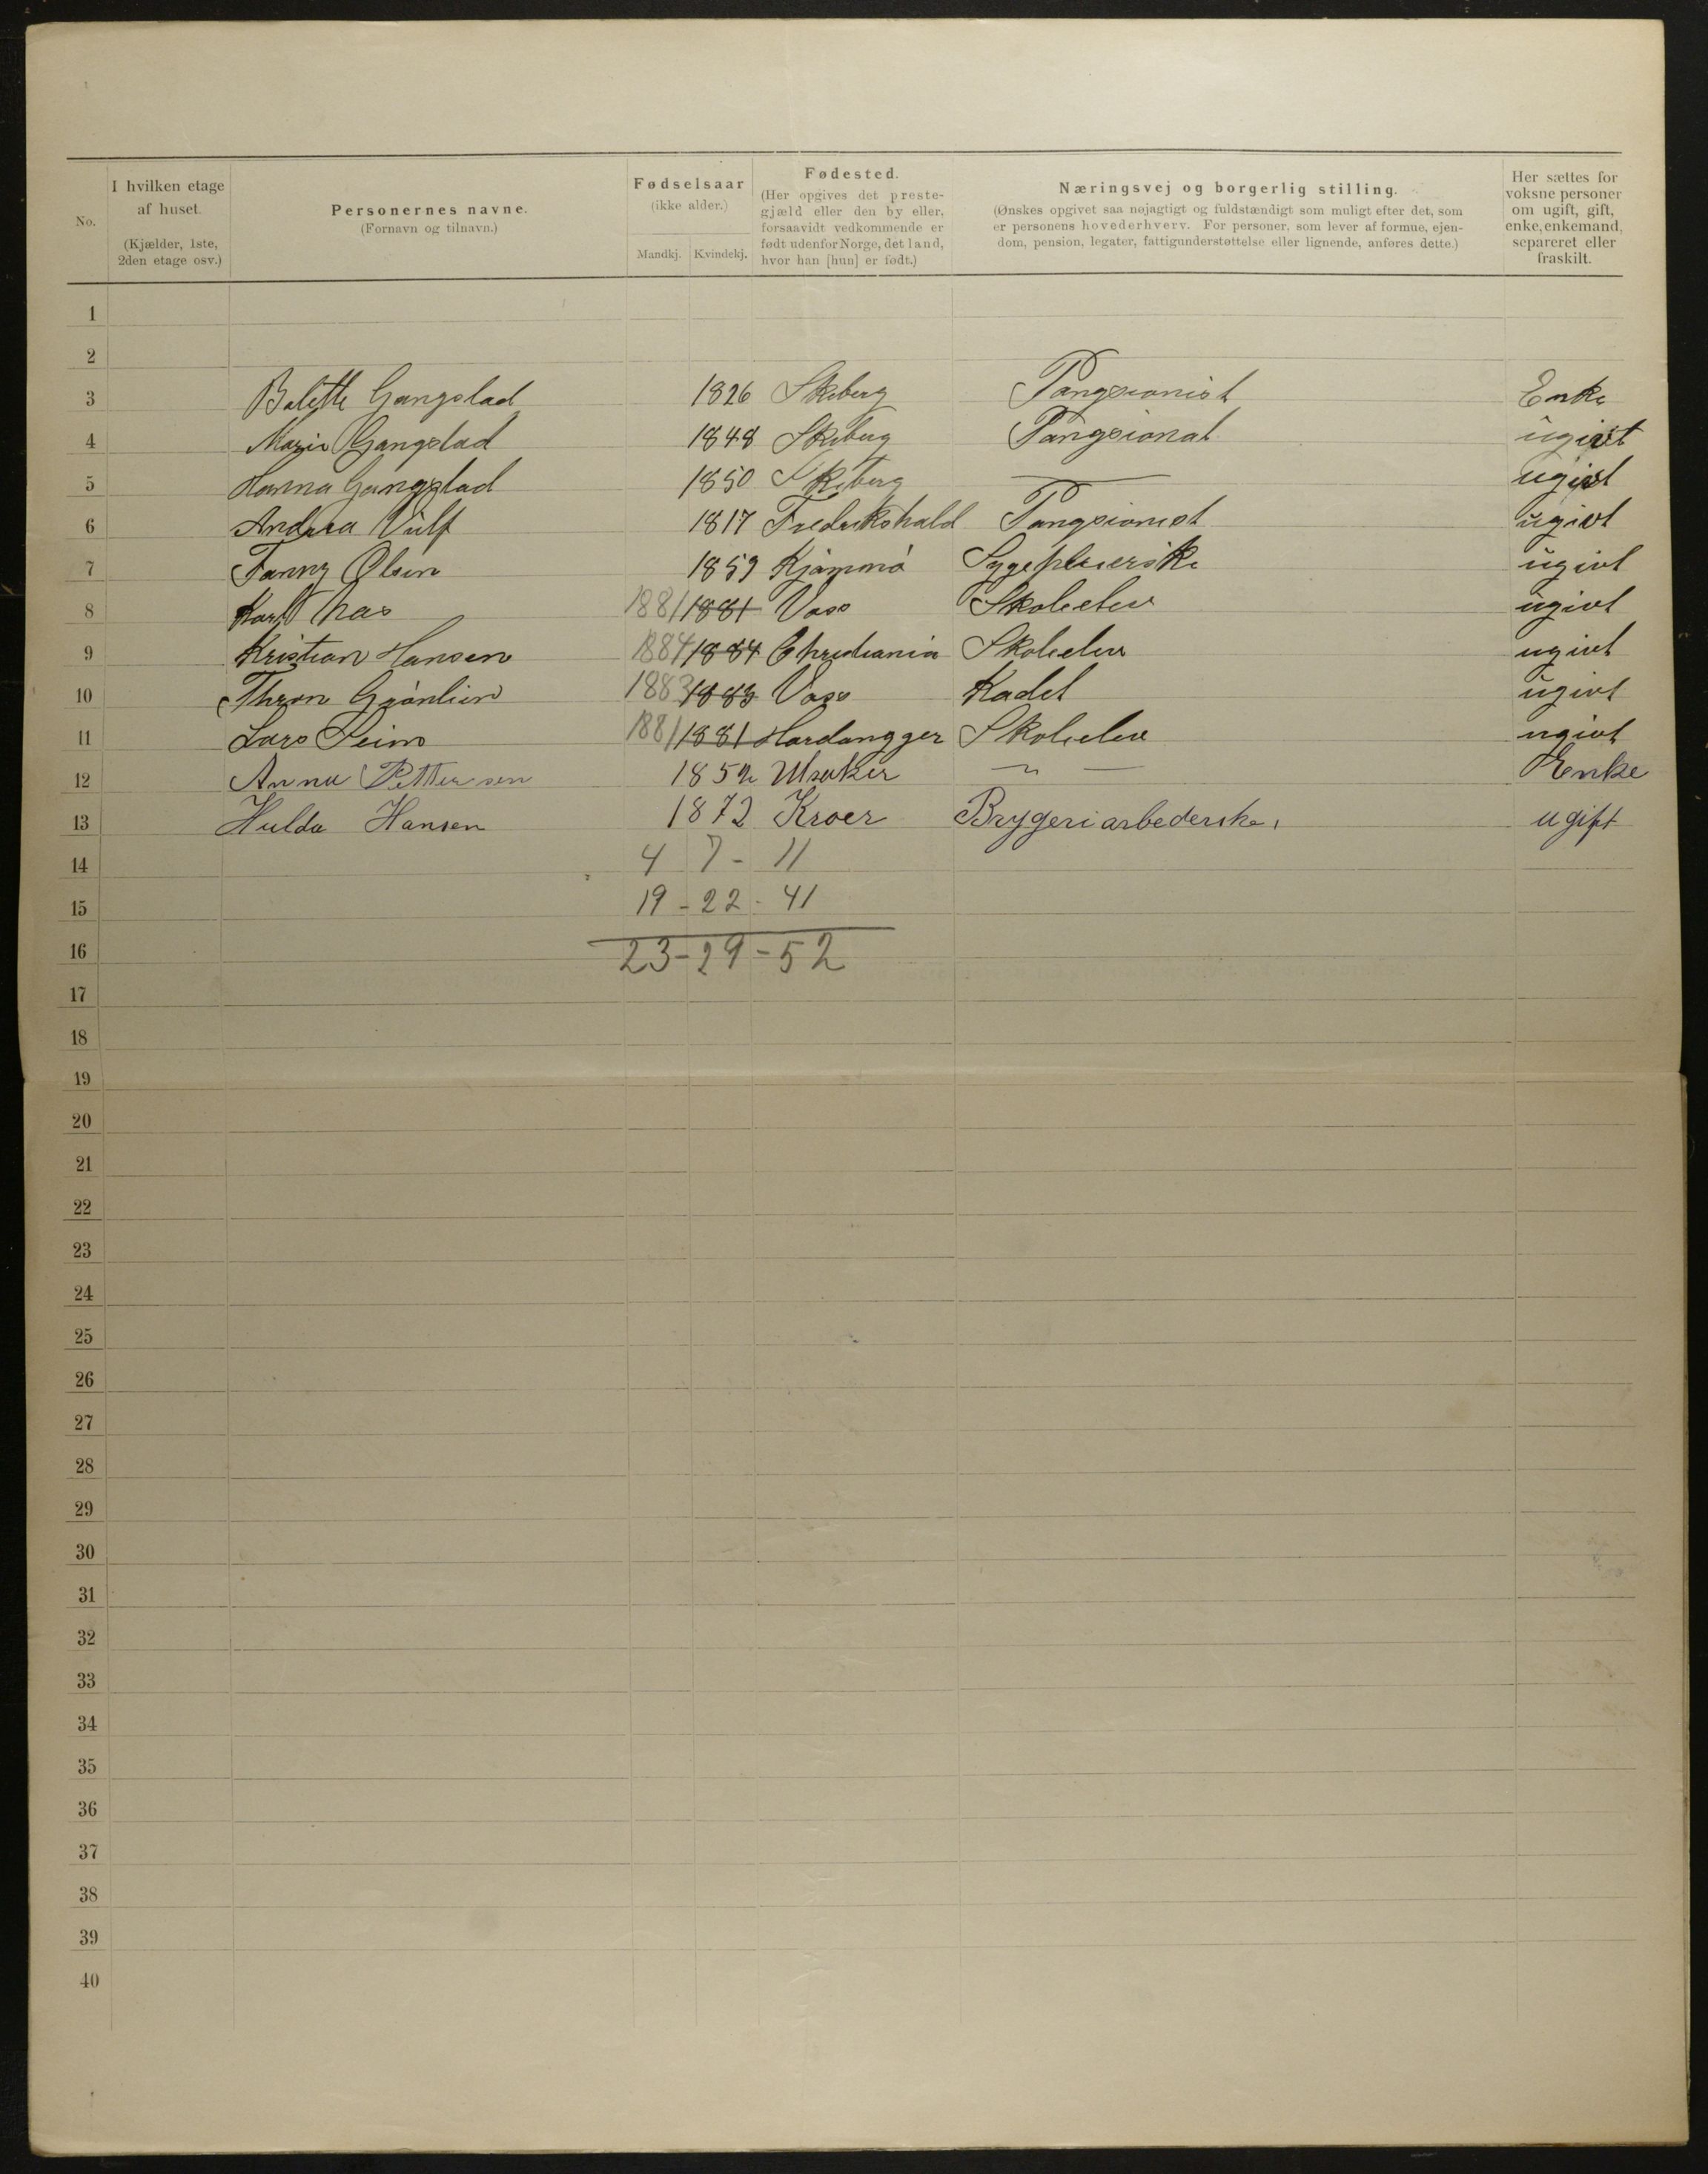 No.
I hvilken etage af huset.
(Kjælder, 1ste, 2den etage osv.)
Personernes navne.
(Fornavn og tilnavn.)
Fødselsaar
(ikke alder.)
Mandkj. Kvindekj.
Fødested.
(Her opgives det prestegjæld eller den by eller, forsaavidt vedkommende er født udenfor Norge, det land, hvor han [hun] er født.)
Næringsvej og borgerlig stilling.
(Ønskes opgivet saa nøjagtigt og fuldstændigt som muligt efter det, som er personens hovederhverv. For personer, som lever af formue, ejendom, pension, legater, fattigunderstøttelse eller lignende, anføres dette.)
Her sættes for voksne personer om ugift, gift, enke, enkemand, separeret eller fraskilt.
1
2
3 Balette Gangstad 1826 Skeberg Pangsionist Enke
4 Marie Gangstad 1848 Skeberg Pangsionat ugivt
5 Hanna Gangstad 1850 Skeberg — ugivt
6 Andrea Vulf 1817 Fredrikshald Pangsionist ugivt
7 Fanny Olsen 1859 Sygepleierske ugivt
8 Karl 1881 1881 Voss Skoleelev ugivt
9 Kristian Hansen 1884 1884 Christiania Skoleelev ugivt
10 1883 1883 Voss Kadet ugivt
11 Lars Seim 1881 1881 Hardangger Skoleelev ugivt
12 Anna Pettersen 185 Ulseker — " — Enke
13 Hulda Hansen 1872 Kroer Brygeriarbederske, ugift
14 4 7 - 11
15 19 - 22 - 41
16 23 - 29 - 52
17
18
19
20
21
22
23
24
25
26
27
28
29
30
31
32
33
34
35
36
37
38
39
40